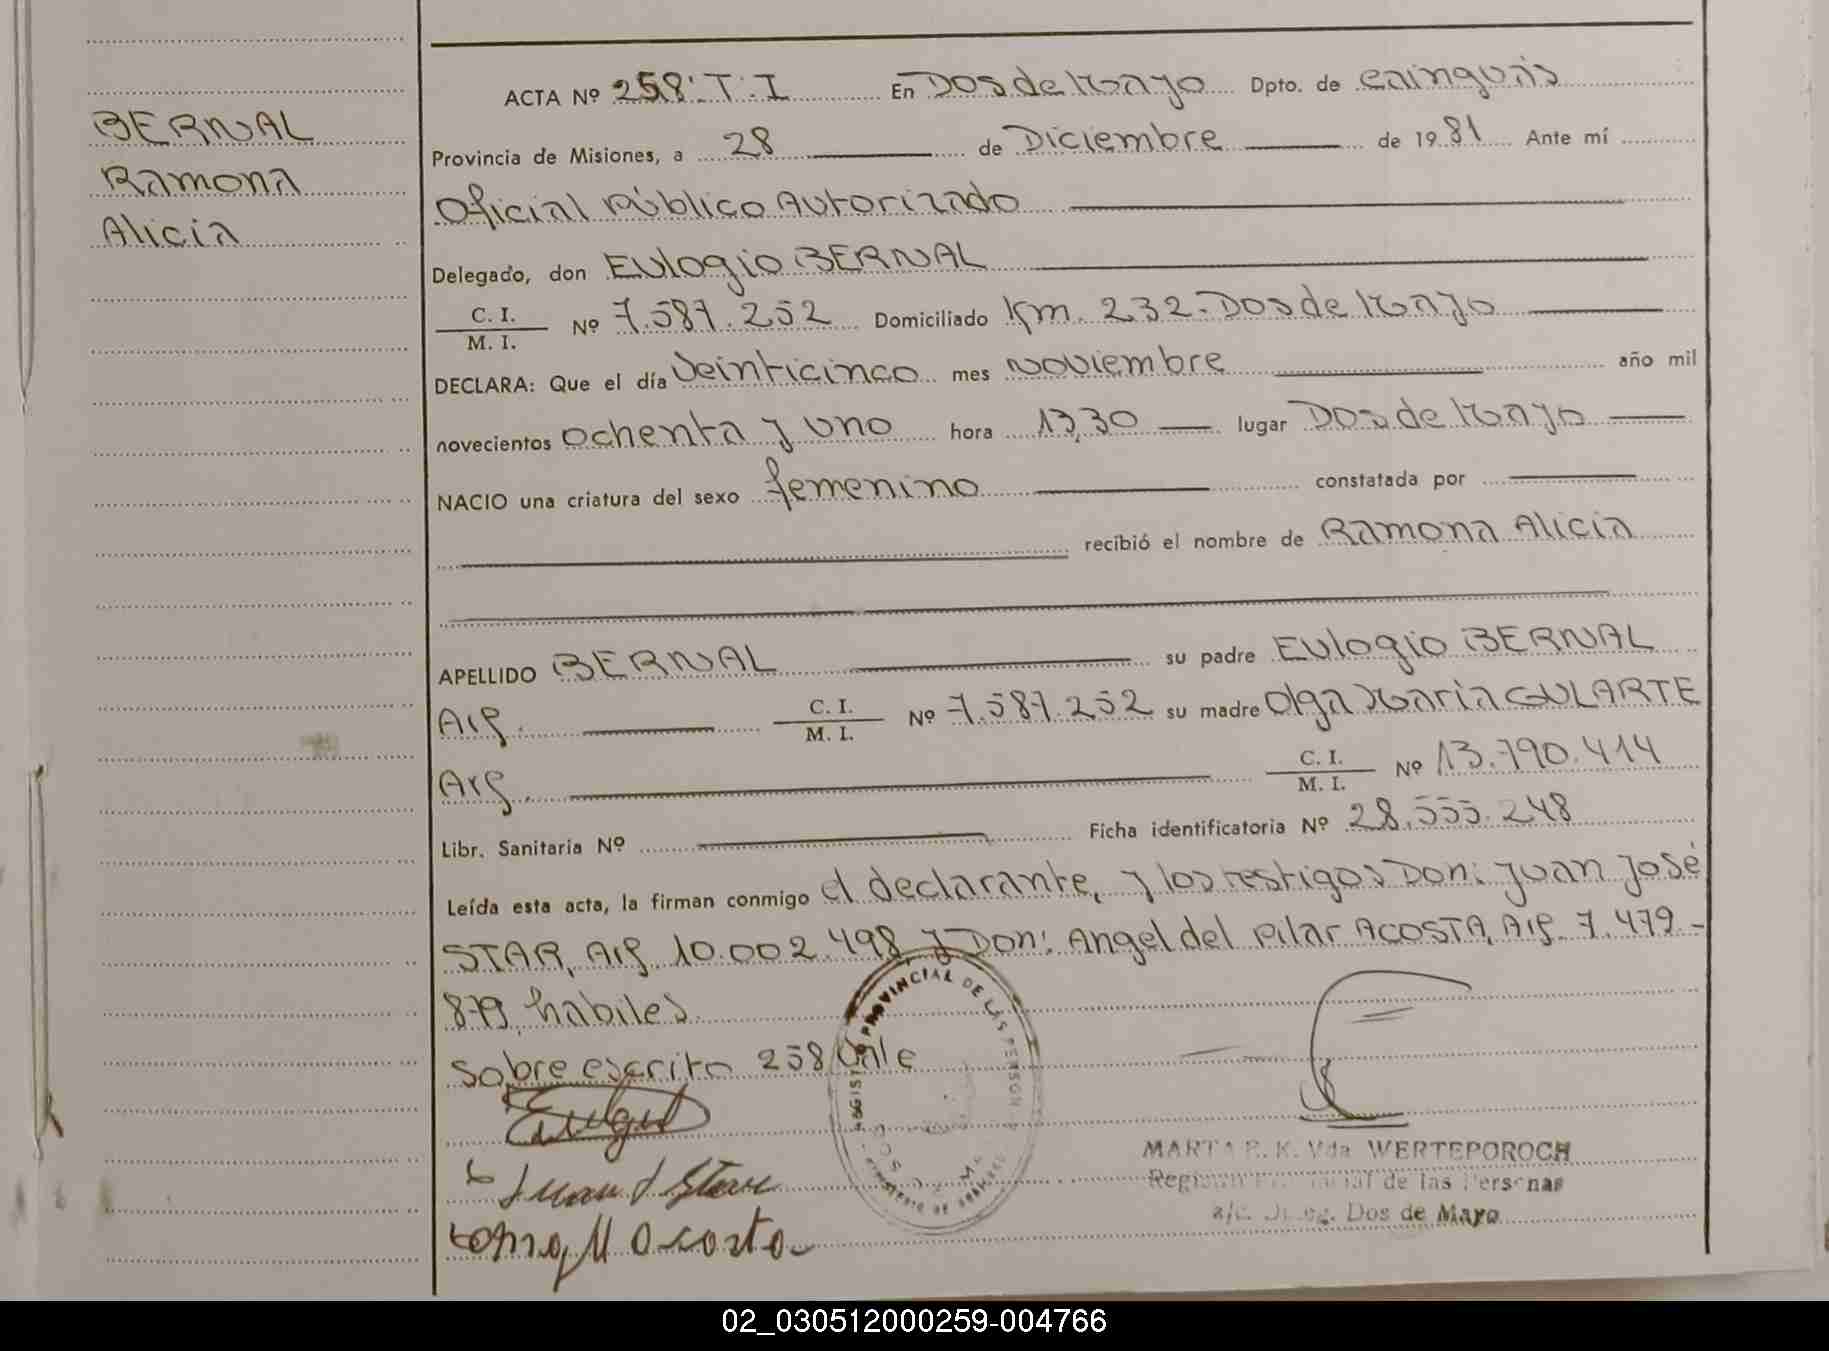 BERNAL
Ramona
Alicia
ACTA Nº 258. T. I En Dos de Mayo Dpto. de Cainguás
Provincia de Misiones, a 28 de Diciembre de 1981 Ante mí
Oficial Público Autorizado
Delegado, don Eulogio BERNAL
C. I.
M. I. Nº 7.587.252 Domiciliado Km. 232-Dos de Mayo
DECLARA: Que el día veinticinco mes noviembre año mil
novecientos ochenta y uno hora 13,30 lugar Dos de Mayo
NACIO una criatura del sexo femenino constatada por
recibió el nombre de Ramona Alicia
APELLIDO BERNAL su padre Eulogio BERNAL
Arg. C. I.
M. I. Nº 7.587.252 su madre Olga Maria GULARTE
Arg. C. I.
M. I. Nº 13.790.414
Libr. Sanitaria Nº Ficha identificatoria Nº 28.555.248
Leída esta acta, la firman conmigo el declarante, y los testigos Don: Juan José
STAR, Arg. 10.002.498 y Don: Angel del Pilar ACOSTA, Arg. 7.479-
879, habiles
Sobre escrito 258 Vale
REGISTRO PROVINCIAL DE LAS PERSONAS
MARTA R. K. Vda WERTEPOROCH
Registro Provincial de las Personas
a/c. Deleg. Dos de Mayo
Juan J Star
Acosta
02_030512000259-004766